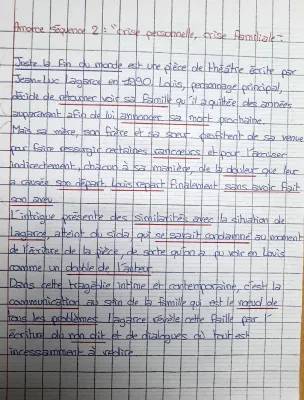 Amorce séquence 2 : "crise personnelle, crise familiale".
Juste la fin du monde est une pièce de théâtre écrite par
Jean-Luc Lagarce en 1990. Louis, personnage principal,
décide de retourner voir sa famille qu'il a quittée des années
auparavant afin de lui annoncer sa mort prochaine.
Mais sa mère, son frère et sa sœur profitent de sa venue
pour faire ressurgir certaines rancœurs et pour l'accuser
indirectement, chacun à sa manière, de la douleur que leur
a causée son départ. Louis repart finalement sans avoir fait
son aveu.
L'intrigue présente des similarités avec la situation de
Lagarce, atteint du sida, qui se savait condamné au moment
de l'écriture de la pièce, de sorte qu'on a pu voir en Louis
comme un double de l'auteur.
Dans cette tragédie intime et contemporaine, c'est la
communication au sein de la famille qui est le nœud de
tous les problèmes. Lagarce révèle cette faille par l'
écriture du non dit et de dialogues où tout est
incessamment à redire.